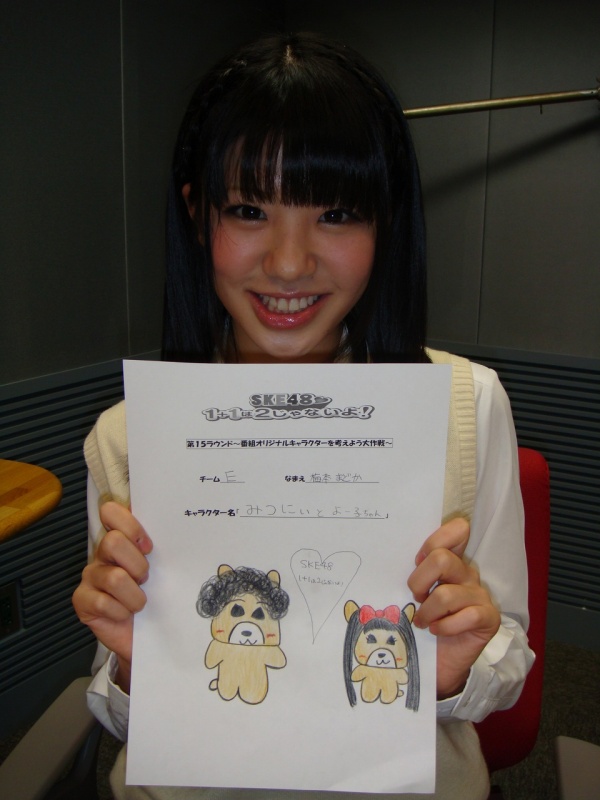 SKE48の
1+1は2じゃないよ!
第15ラウンド～番組オリジナルキャラクターを考えよう大作戦～
チーム E なまえ 梅本まどか
キャラクター名『みつにぃと よー子ちゃん』
SKE48
1+1は2じゃないよ!